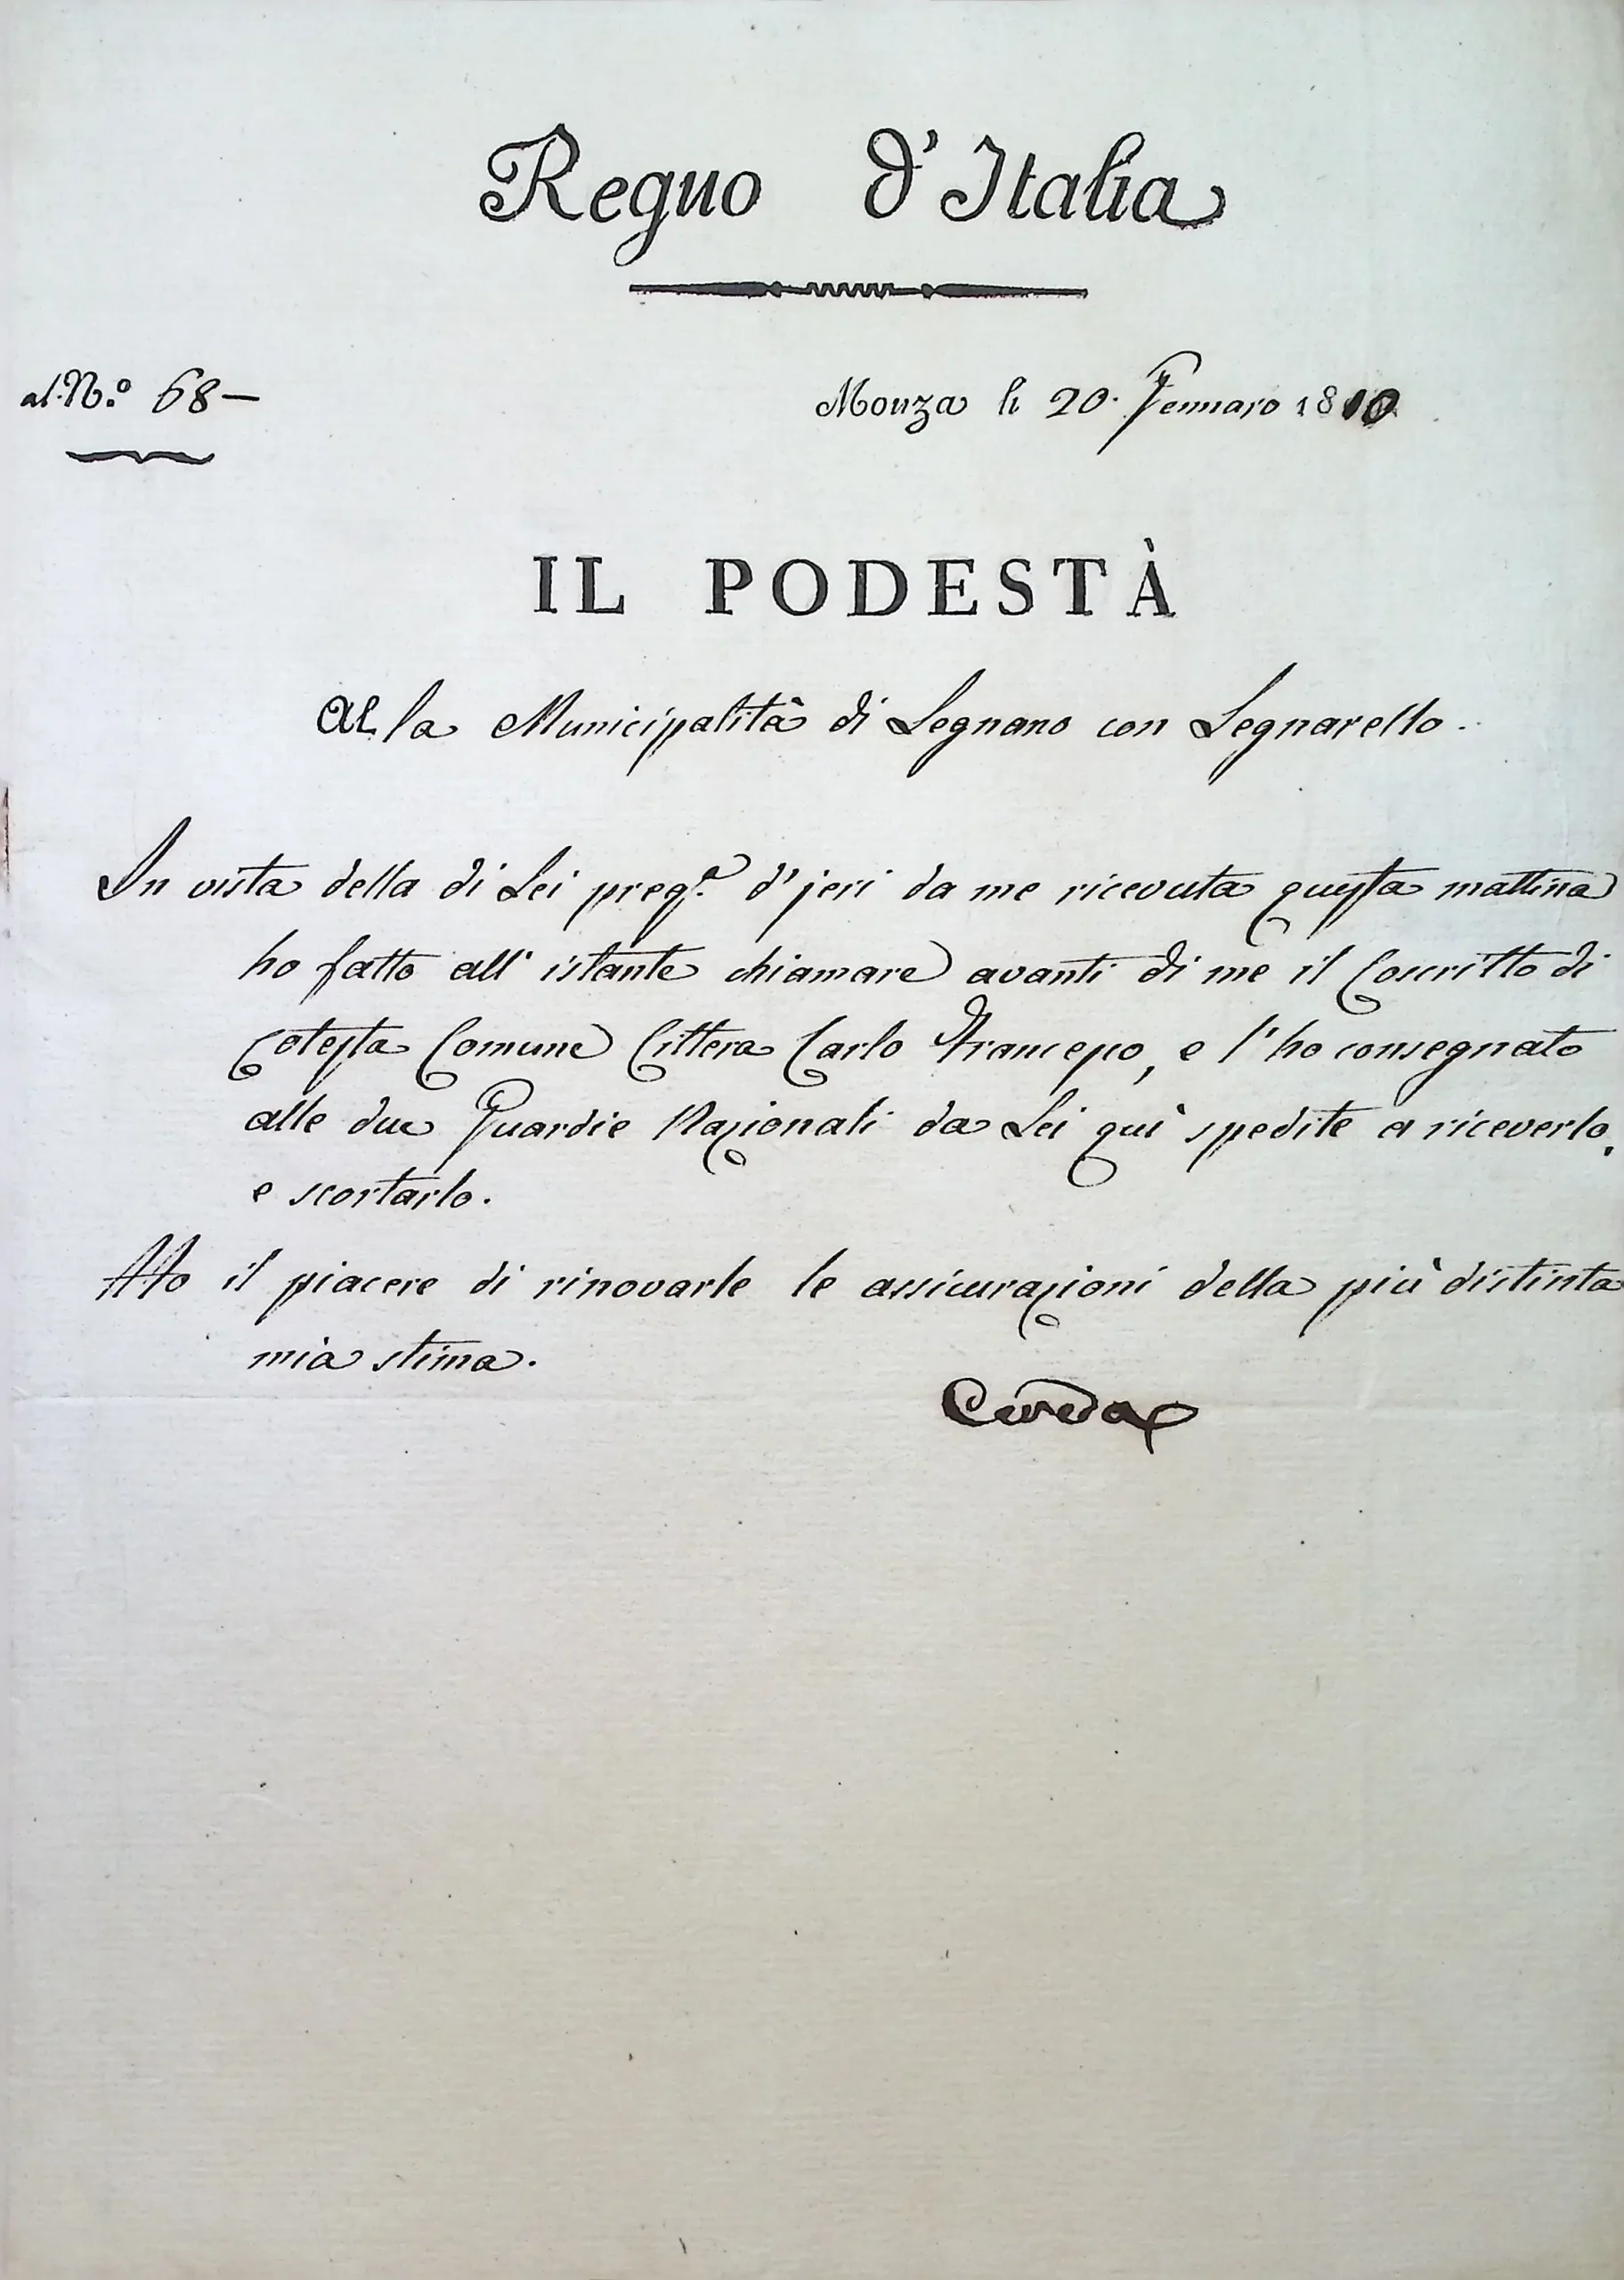 Regno d'Italia
al N.º 68 —
Monza li 20. Gennaro 1810
IL PODESTÀ
Alla Municipalità di Legnano con Legnarello.
In vista della di Lei preg.ª d'jeri da me ricevuta questa mattina
ho fatto all'istante chiamare avanti di me il Coscritto di
cotesta Comune Cittera Carlo Francesco, e l'ho consegnato
alle due Guardie Nazionali da Lei quì spedite a riceverlo,
e scortarlo.
Ho il piacere di rinovarle le assicurazioni della più distinta
mia stima.